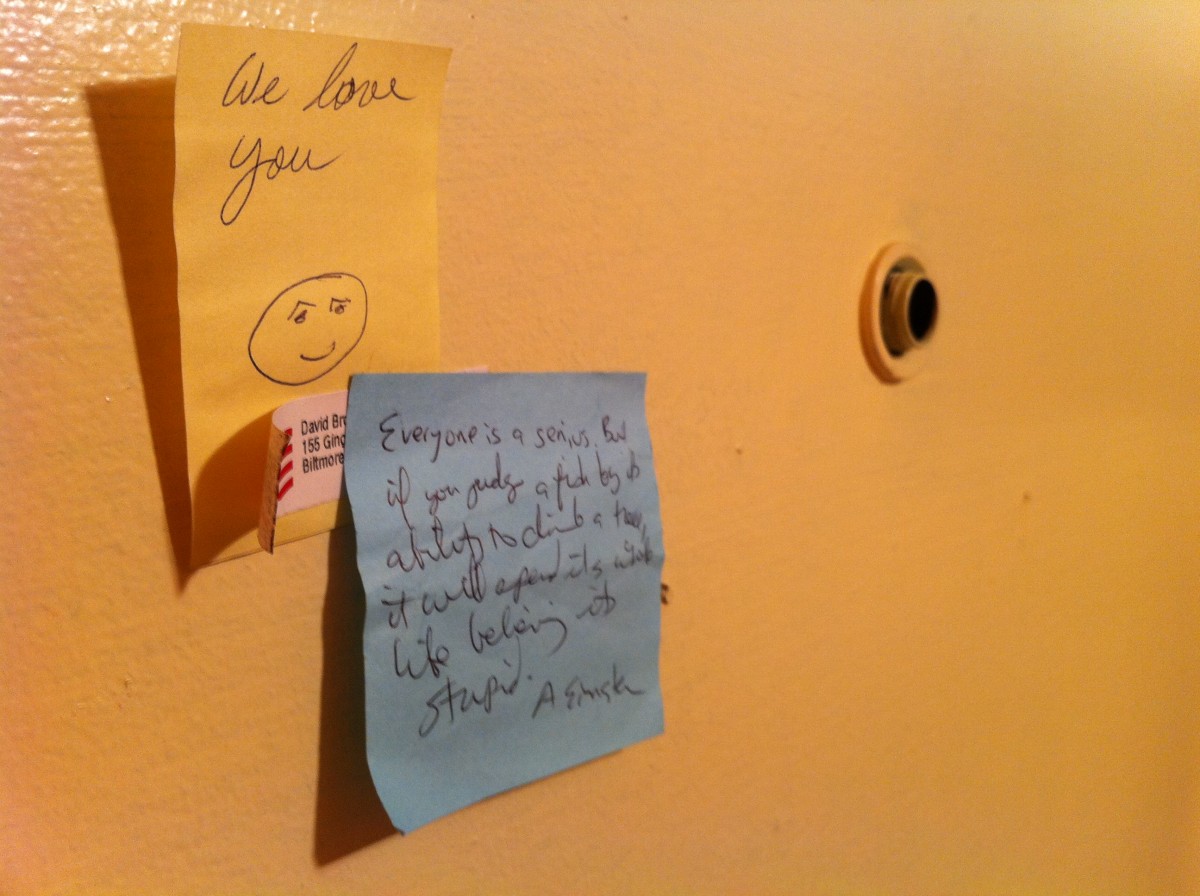 We love
you
David Bro
155 Ging
Biltmore
Everyone is a genius. But
if you judge a fish by its
ability to climb a tree,
it will spend its whole
life believing its
stupid.
A Einstein